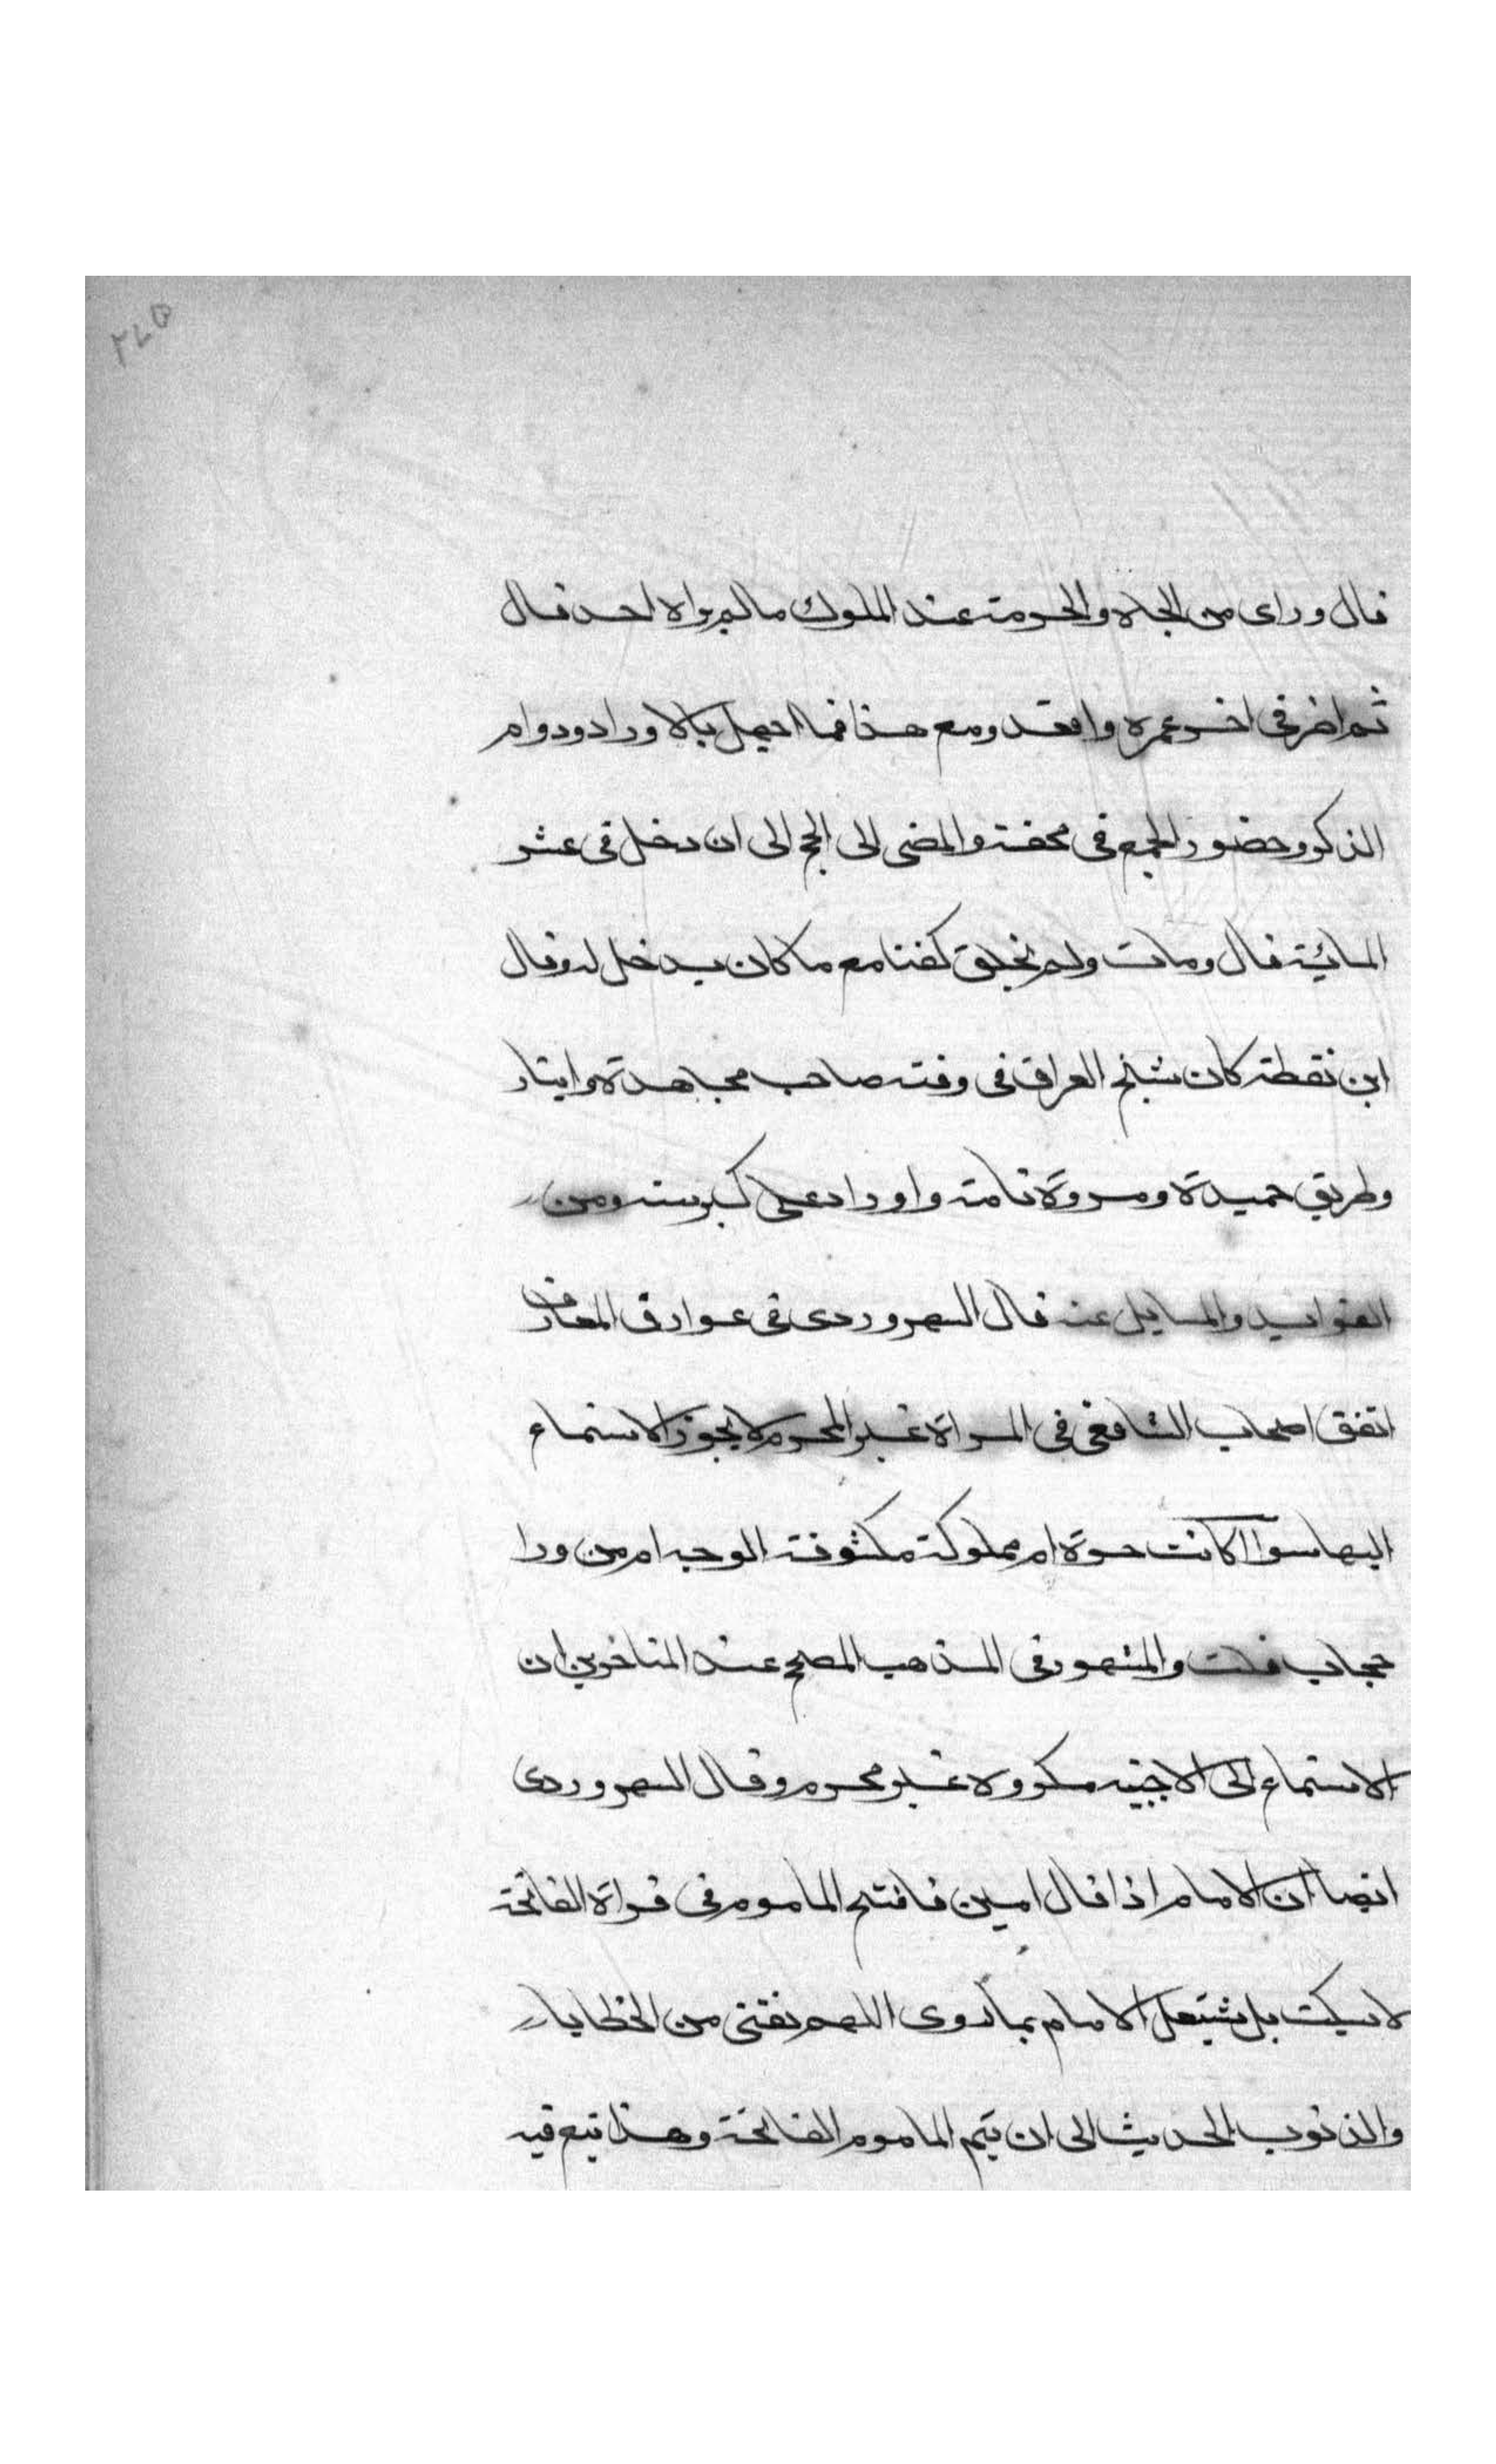 ٢٧٥
قال وراى من الجاه والحرمة عند الملوك مالم يراه احد قال
ثم اضر فى اخر عمره واقعد ومع هذا فما اخل بالاوراد ودوام
الذكر وحضور الجمع فى محفة والمضى الى الحج الى ان دخل فى عشر
المائية قال ومات ولم يخلق كفنا مع ما كان يدخل له وقال
ابن نقطة كان شيخ العراق فى وقته صاحب مجاهدة وايثار
وطريق حميدة ومروة تامة واوراد على كبر سنه ومن
الفوايد والمسايل عنه قال السهروردى فى عوارف المعارف
اتفق اصحاب الشافعى فى المراة غير المحرم لا يجوز الاستماع
اليها سوا اكانت حرة ام مملوكة مكشوفة الوجه ام من ورا
حجاب قلت والمشهور فى المذهب المصحح عند المتاخرين ان
الاستماع الى الاجنبيه مكروه غير محرم وقال السهروردى
ايضا ان الامام اذا قال امين فافتتح الماموم فى قراة الفاتحة
لا يسكت بل يشتغل الامام بما روى اللهم نقنى من الخطايا
والذنوب الحديث الى ان يتم الماموم الفاتحة وهذا تبع فيه